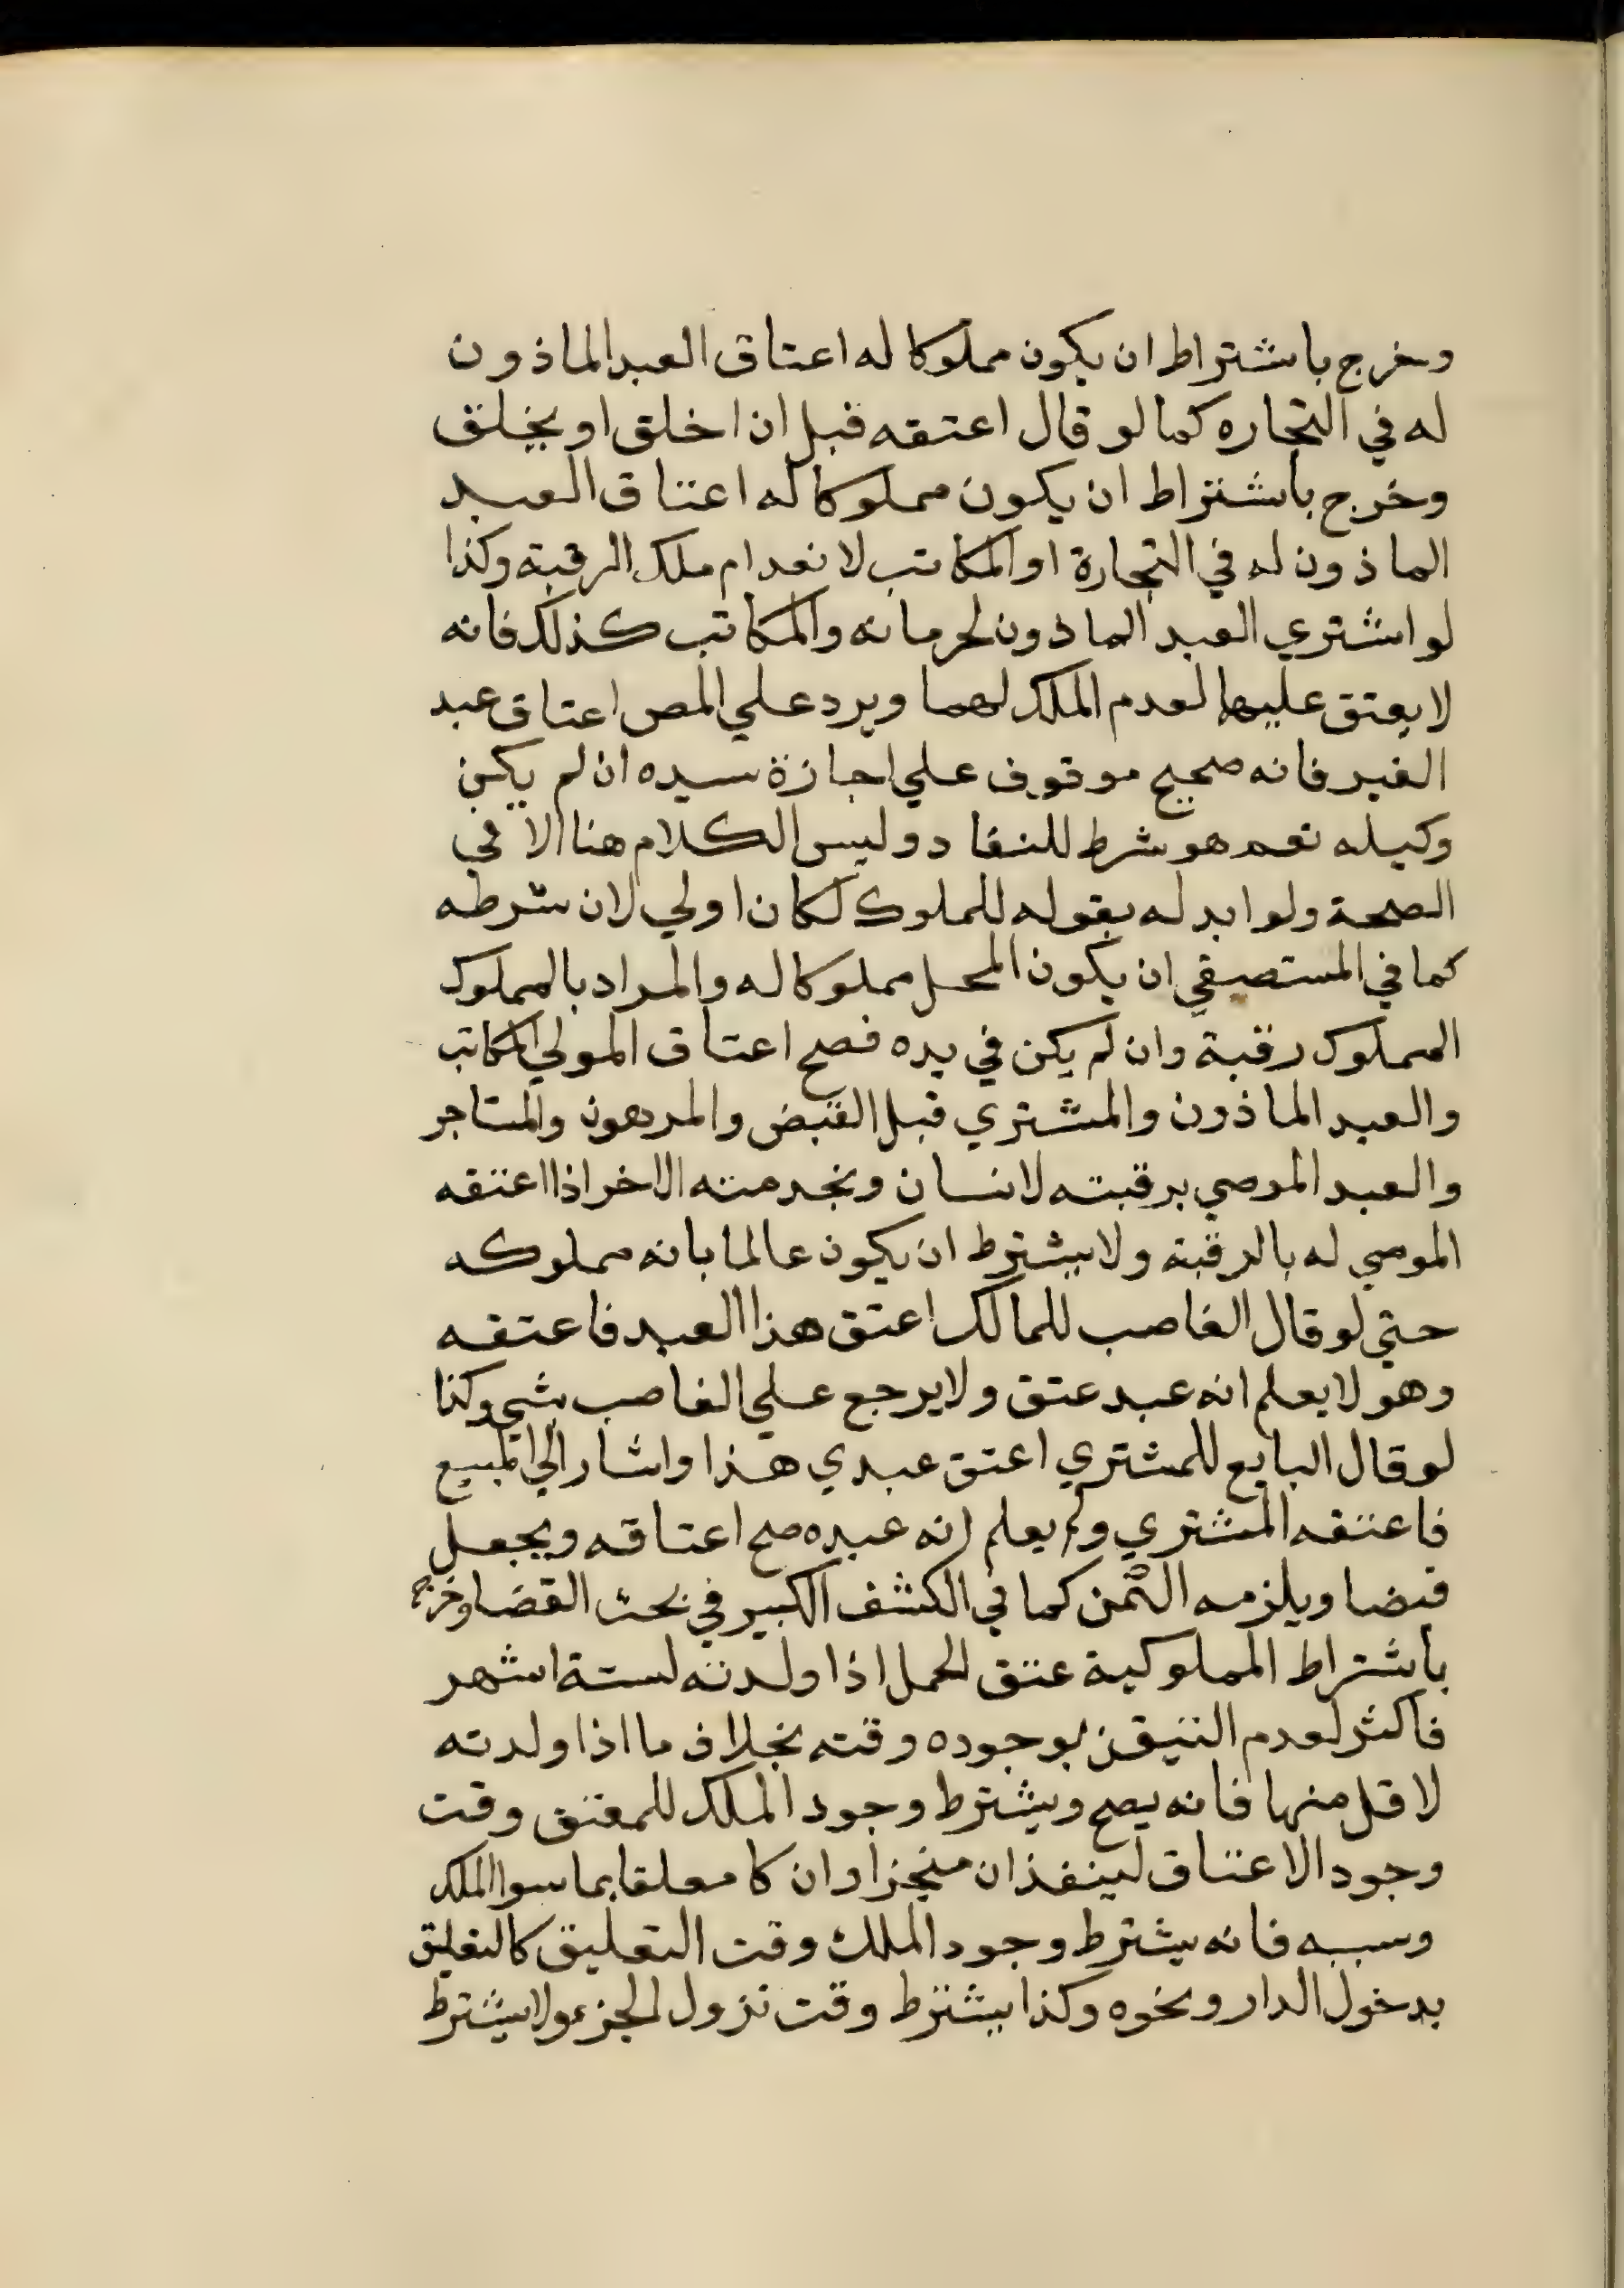 وخرج باشتراط ان يكون مملوكا له اعتاق العبد الماذون
له في التجاره كما لو قال اعتقه قبل ان اخلق او يخلق
وخرج باشتراط ان يكون مملوكا له اعتاق العبد
الماذون له في التجارة او المكاتب لانعدام ملك الرقبة وكذا
لو اشتري العبد الماذون لحرمانه والمكاتب كذلك فانه
لا يعتق عليهما لعدم الملك لهما ويرد علي المص اعتاق عبد
الغير فانه صحيح موقوف علي اجازة سيده ان لم يكن
وكيله نعم هو شرط للنفاد وليس الكلام هنا الا في
الصحة ولو ابدله بقوله للملوك لكان اولي لان شرطه
كما في المستصيفي ان يكون المحل مملوكا له والمراد بالمملوك
المملوك رقبة وان لم يكن في يده فصح اعتاق المولي المكاتب
والعبد الماذون والمشتري قبل القبض والمرهون والمستاجر
والعبد الموصي برقبته لانسان وبخدمته الاخر اذا اعتقه
الموصي له بالرقبة ولا يشترط ان يكون عالما بانه مملوكه
حتي لو قال الغاصب للمالك اعتق هذا العبد فاعتقه
وهو لا يعلم انه عبد عتق ولا يرجع علي الغاصب بشي وكذا
لو قال البايع للمشتري اعتق عبدي هذا واشار الي المبيع
فاعتقه المشتري ولم يعلم انه عبده صح اعتاقه ويجعل
قبضا ويلزمه الثمن كما في الكشف الكبير في بحث القضا وخرج
باشتراط المملوكية عتق الحمل اذا ولدته لستة اشهر
فاكثر لعدم التيقن بوجوده وقته بخلاف ما اذا ولدته
لاقل منها فانه يصح ويشترط وجود الملك للمعتق وقت
وجود الاعتاق لينفذ ان منجزا وان كا معلقا بما سوا الملك
وسببه فانه يشترط وجود الملك وقت التعليق كالتعليق
بدخول الدار ونحوه وكذا يشترط وقت نزول الجزء ولا يشترط